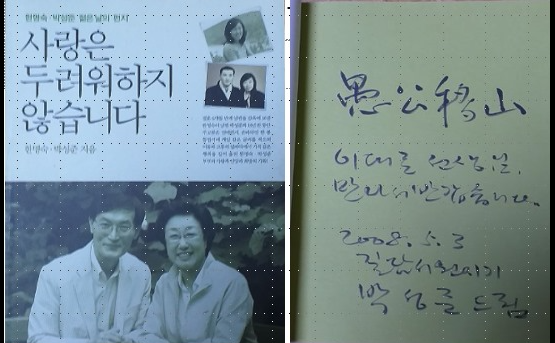 한명숙·박성준 젊은 날의 편지
사랑은
두려워하지
않습니다
한명숙·박성준 지음
愚公移山
이대로 선생님,
만나서 반갑습니다.
2008. 5. 3
길담서원지기
박성준 드림